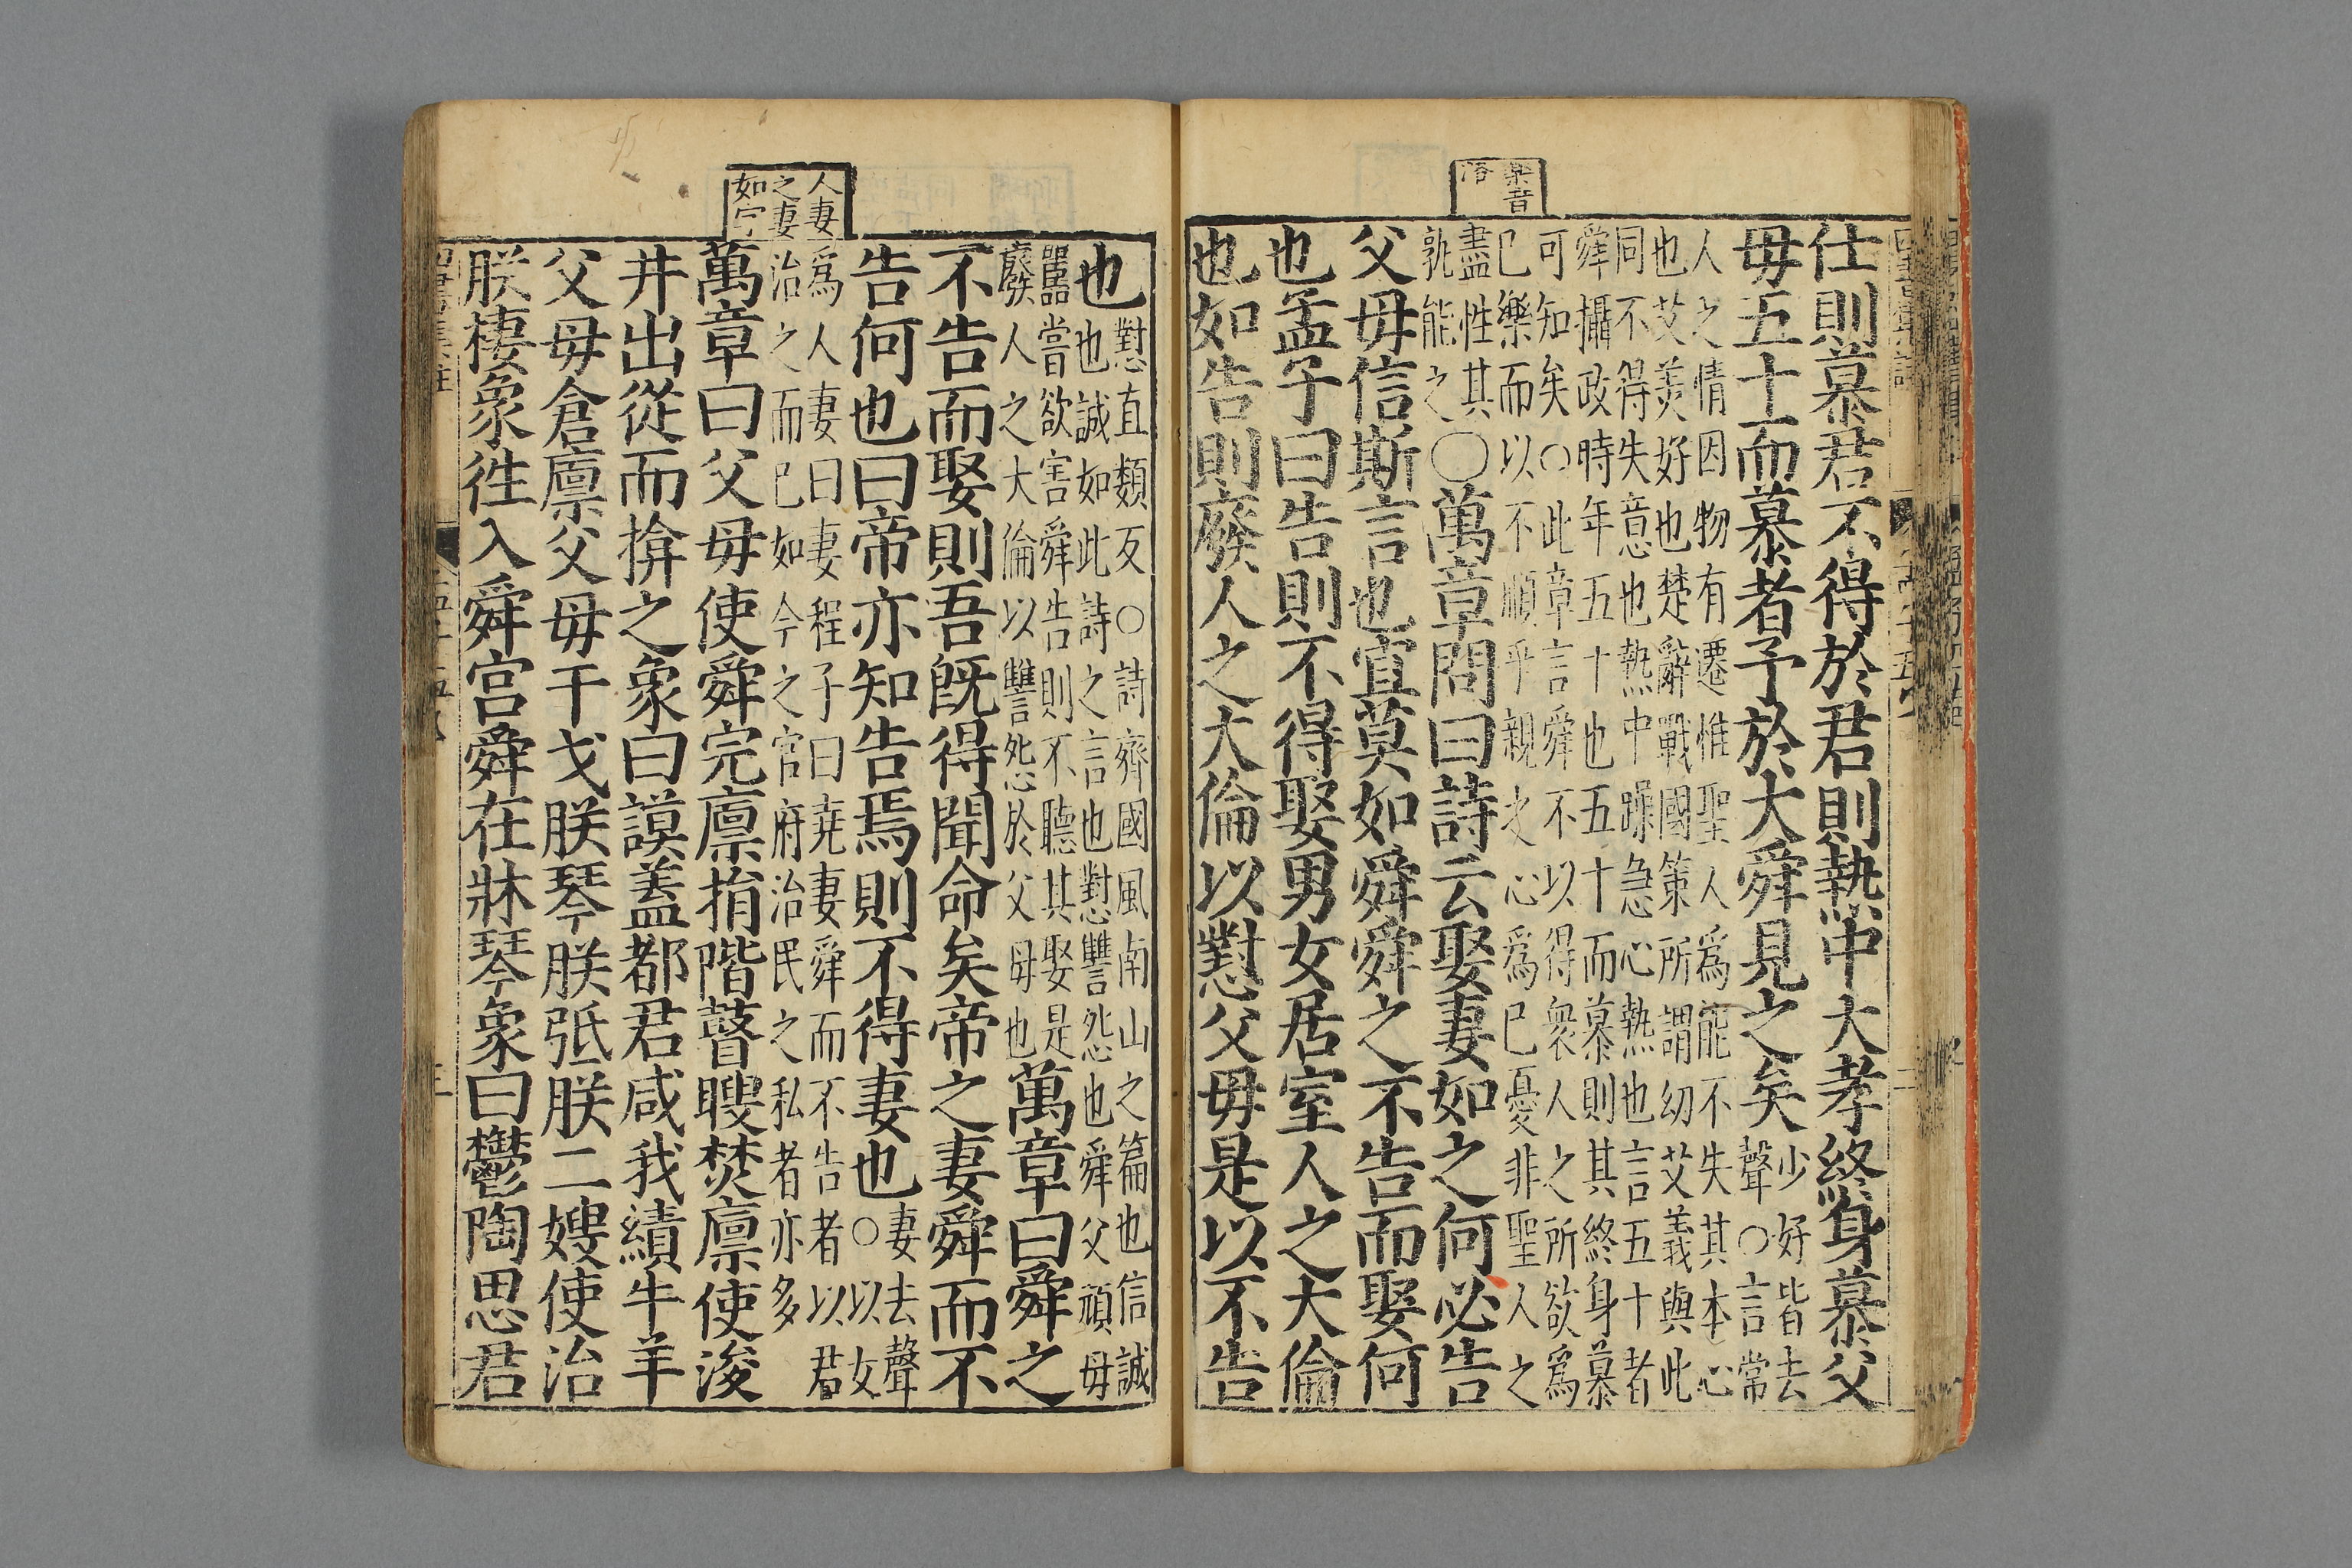 仕則慕君不得於君則熱中大孝終身慕父
母五十而慕者予於大舜見之矣
少好皆去
聲○言常
人之情因物有遷惟聖人爲能不失其本心
也艾美好也楚辭戰國策所謂幼艾義與此
同不得失意也熱中躁急心熱也言五十者
舜攝政時年五十也五十而慕則其終身慕
可知矣○此章言舜不以得衆人之所欲爲
已樂而以不順乎親之心爲已憂非聖人之
盡性其
孰能之
○萬章問曰詩云娶妻如之何必告
父母信斯言也宜莫如舜舜之不告而娶何
也孟子曰告則不得娶男女居室人之大倫
也如告則廢人之大倫以懟父母是以不告
樂音
洛
也
懟直類反○詩齊國風南山之篇也信誠
也誠如此詩之言也懟讐怨也舜父頑母
嚚嘗欲害舜告則不聽其娶是
廢人之大倫以讐怨於父母也
萬章曰舜之
不告而娶則吾旣得聞命矣帝之妻舜而不
告何也曰帝亦知告焉則不得妻也
妻去聲
○以女
爲人妻曰妻程子曰堯妻舜而不告者以君
治之而已如今之官府治民之私者亦多
萬章曰父母使舜完廩捐階瞽瞍焚廩使浚
井出從而揜之象曰謨蓋都君咸我績牛羊
父母倉廩父母干戈朕琴朕弤朕二嫂使治
朕棲象徃入舜宫舜在牀琴象曰鬱陶思君
人妻
之妻
如字